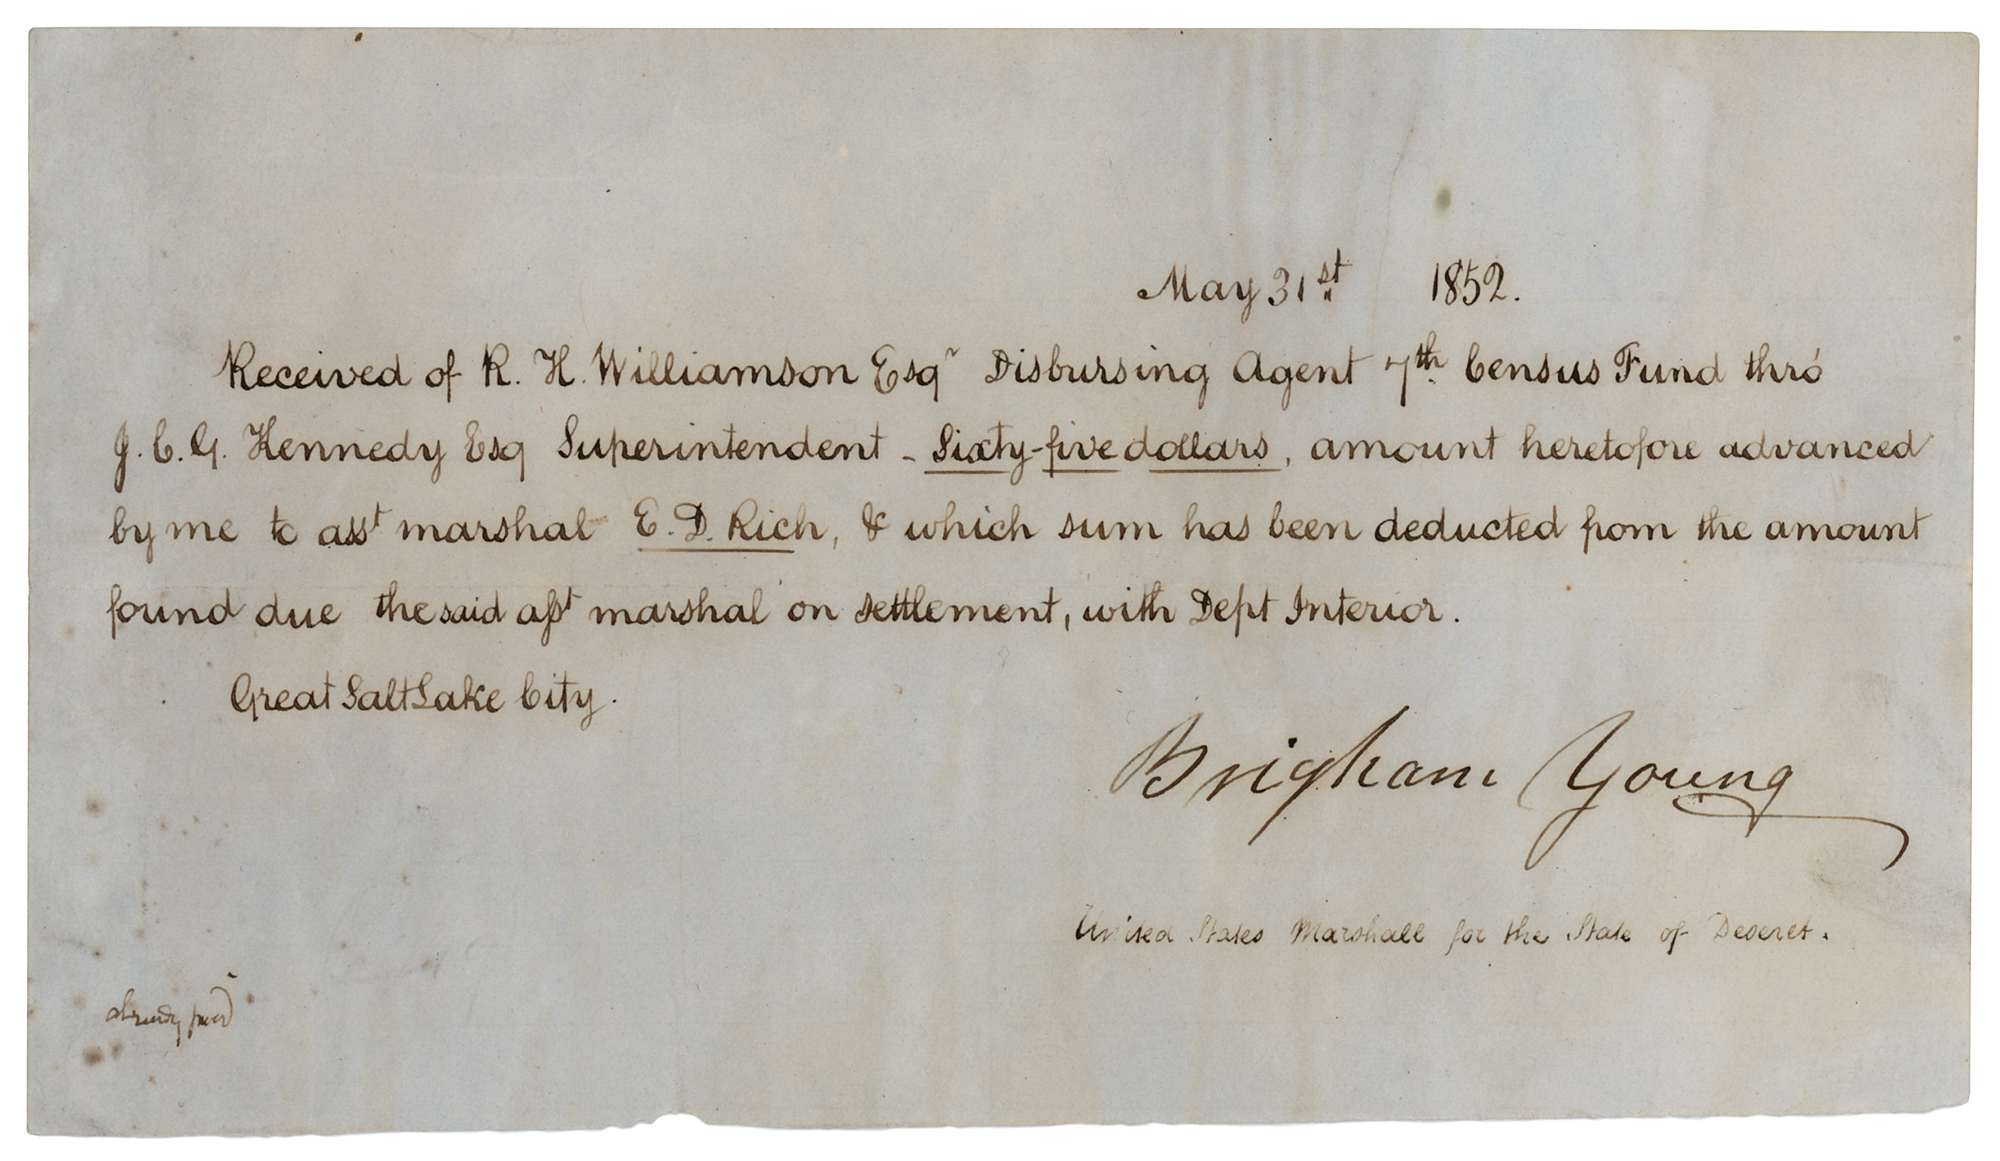 May 31st 1852.
Received of R. H. Williamson Esqr Disbursing Agent 7th Census Fund thro'
J. C. G. Kennedy Esq Superintendent - Sixty-five dollars, amount heretofore advanced
by me to asst marshal E. D. Rich, & which sum has been deducted from the amount
found due the said asst marshal on settlement, with Dept Interior.
Great Salt Lake City.
Brigham Young
United States Marshall for the State of Deseret.
already paid